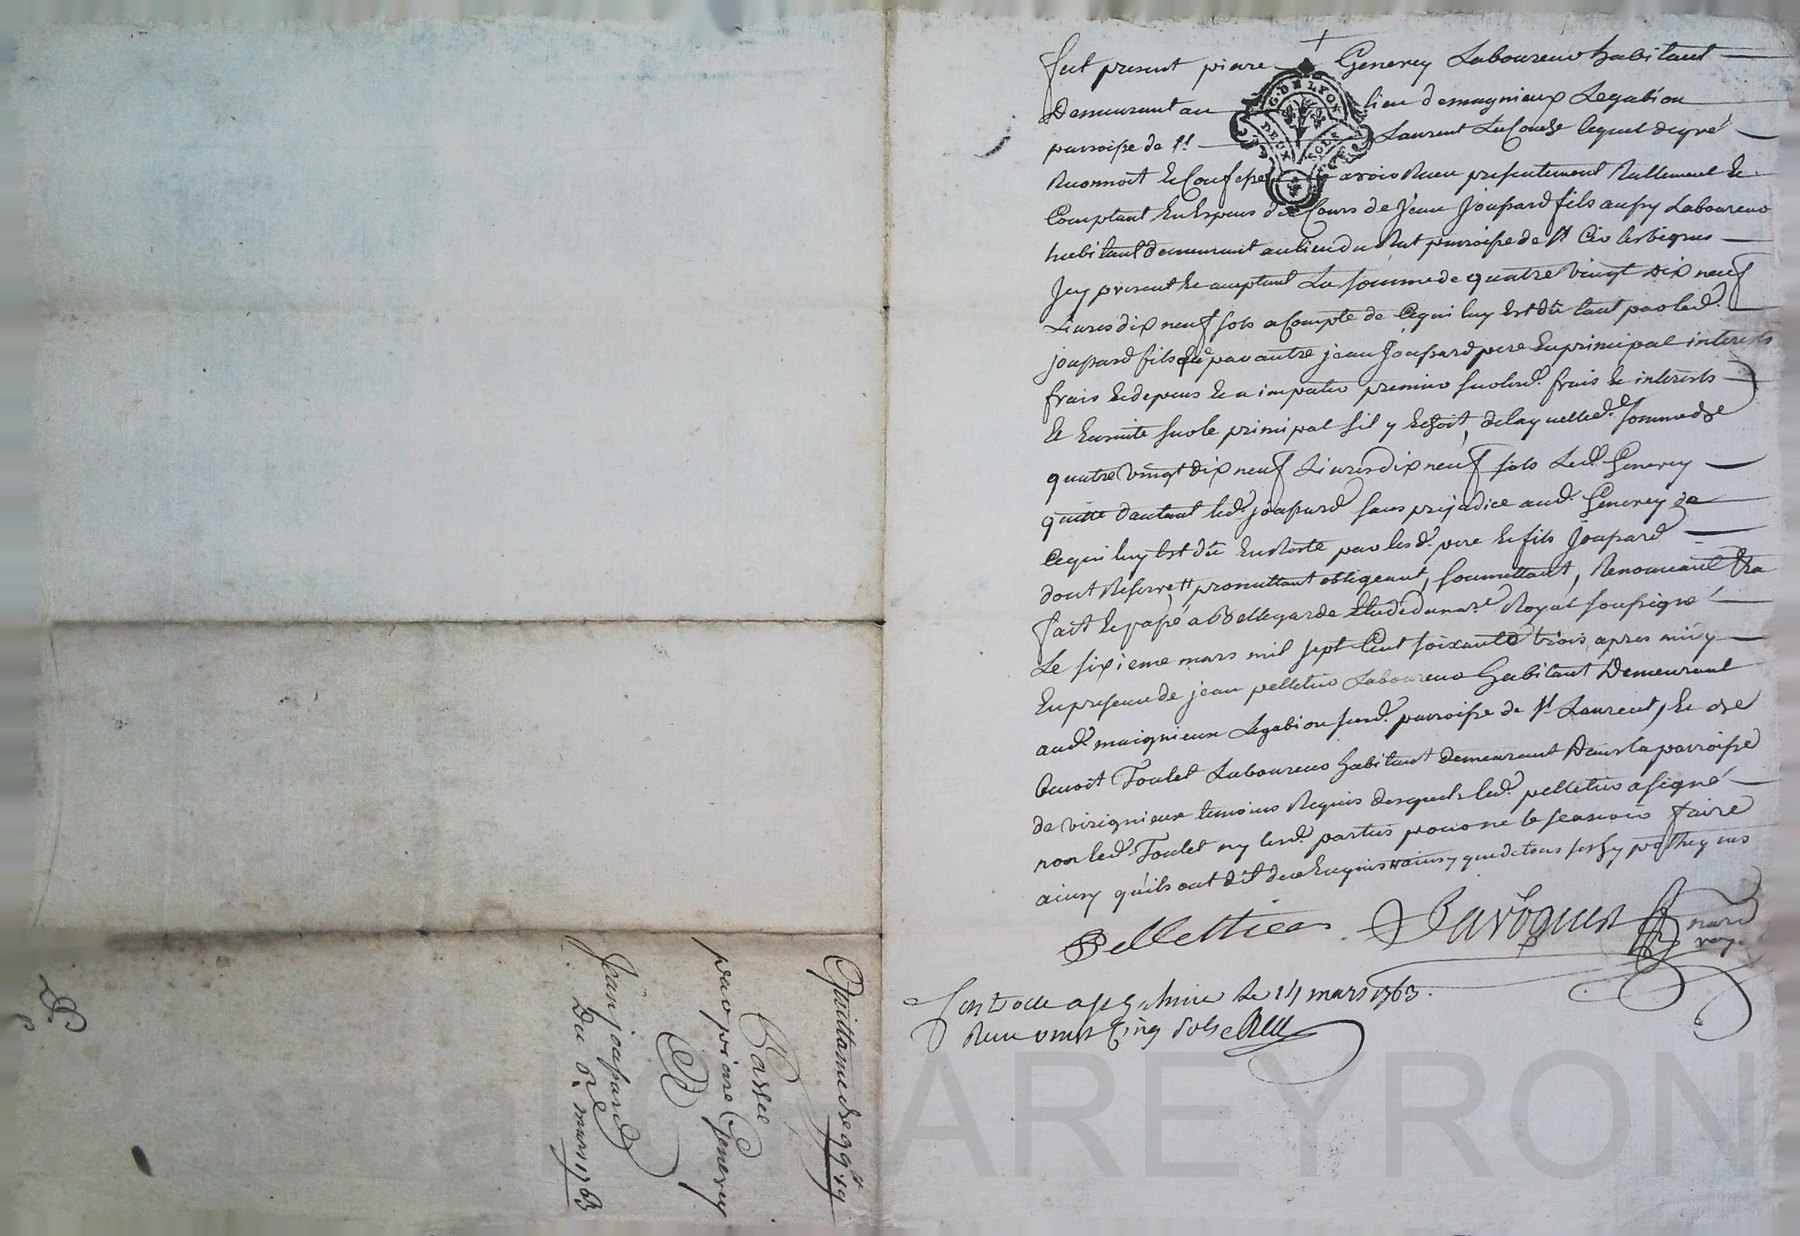 fut present piere Generey Laboureur habitant
Demeurant au lieu de magnieux Legabion
parroisse de St Laurent La Conche lequel de gré
Reconnoit et Confesse avoir Reçu presentement Réellement et
Comptant En Espèces du Cours de Jean Joassard fils aussy Laboureur
habitant demeurant au lieu du Rat parroisse de St Cir les vignes
Jcy present et acceptant La somme de quatre vingt dix neuf
Livres dix neuf sols a Compte de Cequi luy est dû tant par led.
joassard fils que par autre jean Joassard pere En principal interests
frais et depens et a imputer premier sur lesd. frais et interests
et Ensuite sur le principal sil y Echoit, de laquelle d.e somme de
quatre vingt dix neuf Livres dix neuf sols Led. Generey
quitte d'autant led. joassard sans prejudice aud. Generey de
Cequi luy est dû En Reste par lesd. pere et fils Joassard
dont Reserve promettant obligeant, soumettant, Renonceant &a
fait et passé a Bellegarde Etude du nore Royal soussigné
Le sixieme mars mil sept Cent soixante trois, apres midy
En presence de jean pelletier Laboureur habitant Demeurant
aud. maignieux Legabion susd. parroisse de St Laurent, et de
Benoit Toulet Laboureur habitant demeurant Dans la parroisse
de virignieux temoins Requis desquels led. pelletier a signé
non led. Toulet ny lesd. parties pour ne le sçavoir faire
ainsy qu'ils ont dit de ce Enquis
Pellettier
Contrôlé a le 14 mars 1763.
Reçu vingt Cinq sols
Quittance de 99tt 19s
Passée
par piere Generey
a
Jean joassard
Du 6e mars 1763
G. DE LYON
DEUX SOLS
AREYRON